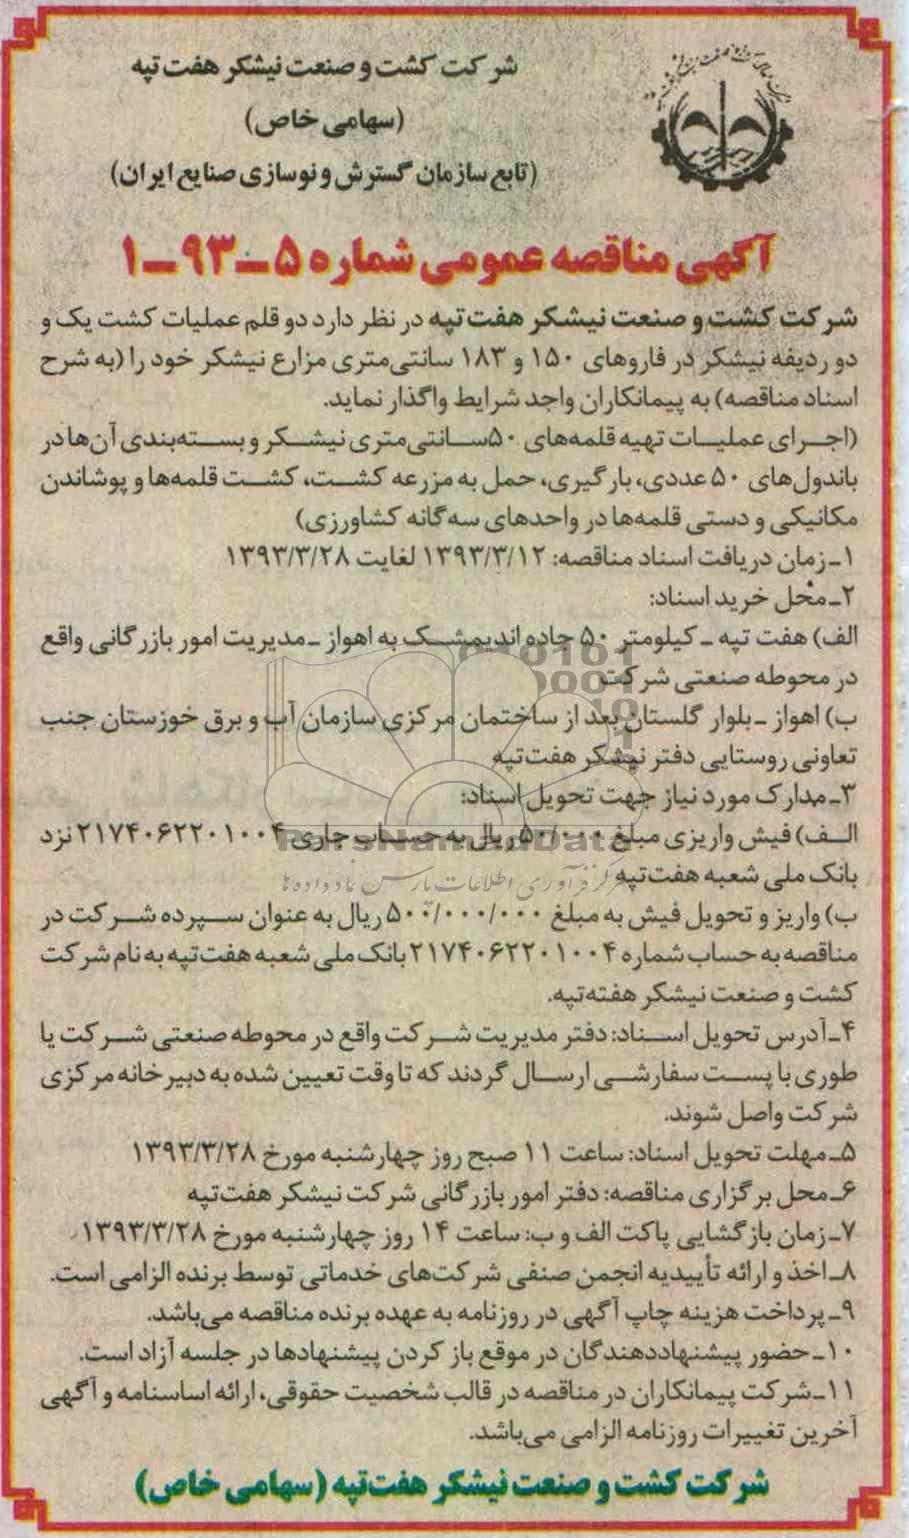 شرکت کشت و صنعت نیشکر هفت تپه
(سهامی خاص)
(تابع سازمان گسترش و نوسازی صنایع ایران)
آگهی مناقصه عمومی شماره ۵ـ۹۳ـ۱
شرکت کشت و صنعت نیشکر هفت تپه در نظر دارد دو قلم عملیات کشت یک و
دو ردیفه نیشکر در فاروهای ۱۵۰ و ۱۸۳ سانتی‌متری مزارع نیشکر خود را (به شرح
اسناد مناقصه) به پیمانکاران واجد شرایط واگذار نماید.
(اجرای عملیات تهیه قلمه‌های ۵۰سانتی‌متری نیشکر و بسته‌بندی آن‌ها در
باندول‌های ۵۰ عددی، بارگیری، حمل به مزرعه کشت، کشت قلمه‌ها و پوشاندن
مکانیکی و دستی قلمه‌ها در واحدهای سه‌گانه کشاورزی)
۱ـ زمان دریافت اسناد مناقصه: ۱۳۹۳/۳/۱۲ لغایت ۱۳۹۳/۳/۲۸
۲ـ محل خرید اسناد:
الف) هفت تپه ـ کیلومتر ۵۰ جاده اندیمشک به اهواز ـ مدیریت امور بازرگانی واقع
در محوطه صنعتی شرکت
ب) اهواز ـ بلوار گلستان بعد از ساختمان مرکزی سازمان آب و برق خوزستان جنب
تعاونی روستایی دفتر نیشکر هفت‌تپه
۳ـ مدارک مورد نیاز جهت تحویل اسناد:
الف) فیش واریزی مبلغ ۵۰/۰۰۰ریال به حساب جاری ۲۱۷۴۰۶۲۲۰۱۰۰۴ نزد
بانک ملی شعبه هفت‌تپه
ParsNamadData
مرکز فرآوری اطلاعات پارس نماد داده ها
ب) واریز و تحویل فیش به مبلغ ۵۰۰/۰۰۰/۰۰۰ریال به عنوان سپرده شرکت در
مناقصه به حساب شماره ۲۱۷۴۰۶۲۲۰۱۰۰۴ بانک ملی شعبه هفت‌تپه به نام شرکت
کشت و صنعت نیشکر هفته‌تپه.
۴ـ آدرس تحویل اسناد: دفتر مدیریت شرکت واقع در محوطه صنعتی شرکت یا
طوری با پست سفارشی ارسال گردند که تا وقت تعیین شده به دبیرخانه مرکزی
شرکت واصل شوند.
۵ـ مهلت تحویل اسناد: ساعت ۱۱ صبح روز چهارشنبه مورخ ۱۳۹۳/۳/۲۸
۶ـ محل برگزاری مناقصه: دفتر امور بازرگانی شرکت نیشکر هفت‌تپه
۷ـ زمان بازگشایی پاکت الف و ب: ساعت ۱۴ روز چهارشنبه مورخ ۱۳۹۳/۳/۲۸
۸ـ اخذ و ارائه تأییدیه انجمن صنفی شرکت‌های خدماتی توسط برنده الزامی است.
۹ـ پرداخت هزینه چاپ آگهی در روزنامه به عهده برنده مناقصه می‌باشد.
۱۰ـ حضور پیشنهاددهندگان در موقع باز کردن پیشنهادها در جلسه آزاد است.
۱۱ـ شرکت پیمانکاران در مناقصه در قالب شخصیت حقوقی، ارائه اساسنامه و آگهی
آخرین تغییرات روزنامه الزامی می‌باشد.
شرکت کشت و صنعت نیشکر هفت‌تپه (سهامی خاص)